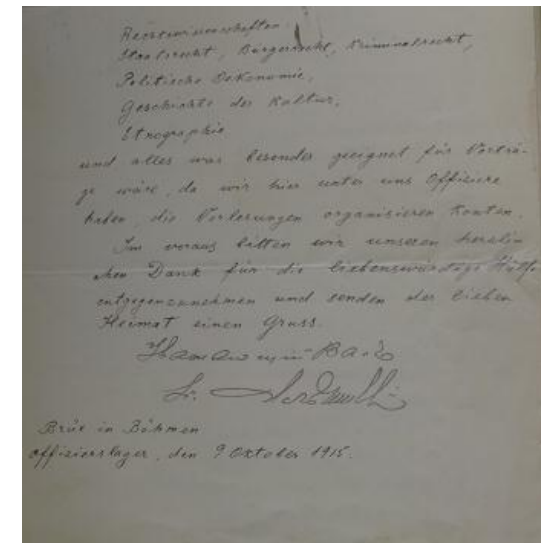 Rechtswissenschaften.
Staatsrecht, Bürgerrecht, Kriminalrecht,
Politische Oekonomie,
Geschichte der Kultur,
Etnographie
und alles was besonder geeignet für Vorträ-
ge wäre, da wir hier unter uns Offiziere
haben, die Vorlesungen organisieren konten.
Im voraus bitten wir unseren herzlin
chen Dank für die liebenswürdige Hülfe
entgegenzunehmen und senden der lieben
Heimat einen Gruss.
Brüx in Böhmen
Offizierslager, den 9 Oktober 1915.